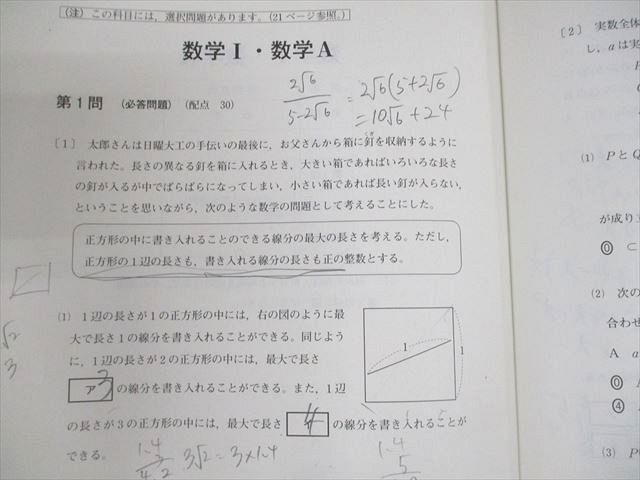 (注) この科目には,選択問題があります。(21ページ参照。)
数学Ⅰ・数学A
2√6/5-2√6 = 2√6(5+2√6)
= 10√6+24
第1問 (必答問題) (配点 30)
〔1〕 太郎さんは日曜大工の手伝いの最後に,お父さんから箱に釘を収納するように
言われた。長さの異なる釘を箱に入れるとき,大きい箱であればいろいろな長さ
の釘が入るが中でばらばらになってしまい,小さい箱であれば長い釘が入らない,
ということを思いながら,次のような数学の問題として考えることにした。
正方形の中に書き入れることのできる線分の最大の長さを考える。ただし,
正方形の1辺の長さも,書き入れる線分の長さも正の整数とする。
(1) 1辺の長さが1の正方形の中には,右の図のように最
大で長さ1の線分を書き入れることができる。同じよう
に,1辺の長さが2の正方形の中には,最大で長さ
ア の線分を書き入れることができる。また,1辺
の長さが3の正方形の中には,最大で長さ 4 の線分を書き入れることが
できる。
1
1
√2
3
3√2=3×1.4
1.4
5
〔2〕 実数全体
し,aは実
(1) PとQ
が成り立
⓪ ⊂
(2) 次の
合わせ
A a
⓪
④
(3) P